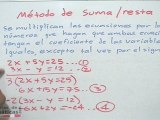 Método de Suma/resta
se multiplican las ecuaciones por los
números que hagan que ambas ecuac
tengan el coeficiente de las variables
les excepto tal vez por el signo
2x + 5y = 25 ... ①
3x - y = 12 ... ②
3(2x + 5y = 25)
6x + 15y = 75 ... ③
2(3x - y = 12)
6x - 2y = 24 ... ④